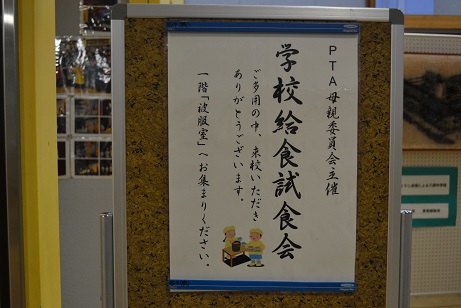 PTA母親委員会主催
学校給食試食会
ご多用の中、来校いただき
ありがとうございます。
一階「被服室」へお集まりください。